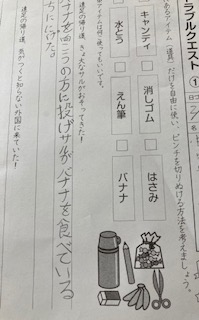 ラブルクエスト ①
るアイテム（道具）だけを自由に使い、ピンチを切りぬける方法を考えましょう。
キャンディ
消しゴム
はさみ
水とう
えん筆
バナナ
何こ使ってもいいです。
遠足の帰り道、きょ大なサルがおそってきた！
ナナを向こうの方に投げサルがバナナを食べている
ちににげる。
遠足の帰り道、気がつくと知らない外国に来ていた！